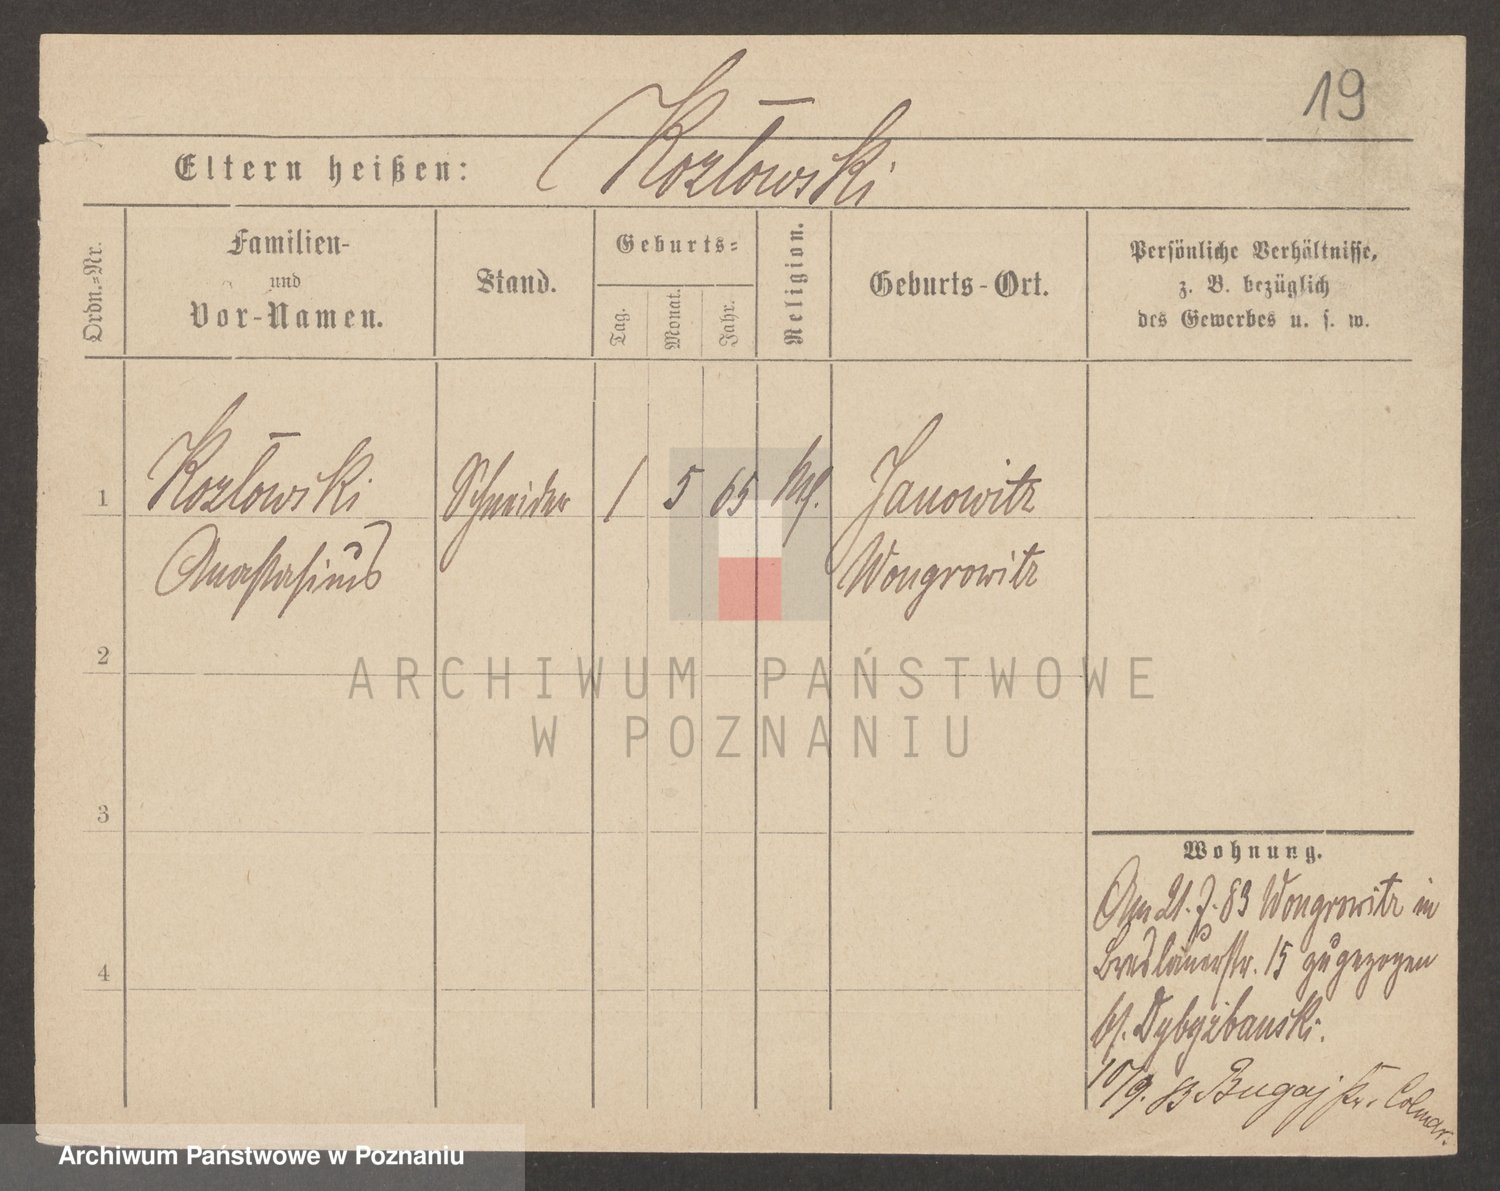 19
Kozlowski
Eltern heißen:
Ordn.=Nr.
Familien-
und
Vor-Namen.
Stand.
Geburts=
Tag.
Monat.
Jahr.
Religion.
Geburts-Ort.
Persönliche Verhältnisse,
z. B. bezüglich
des Gewerbes u. s. w.
1
Kozlowski
Schneider
1 5 65
Janowitz
Anastasius
Wongrowitz
2
ARCHIWUM PAŃSTWOWE
W POZNANIU
3
Wohnung.
Am 21. 7. 83 Wongrowitz in
Breslauerstr. 15 zugezogen
4
10/9. 83 Bugaj Kr. Colmar.
Archiwum Państwowe w Poznaniu